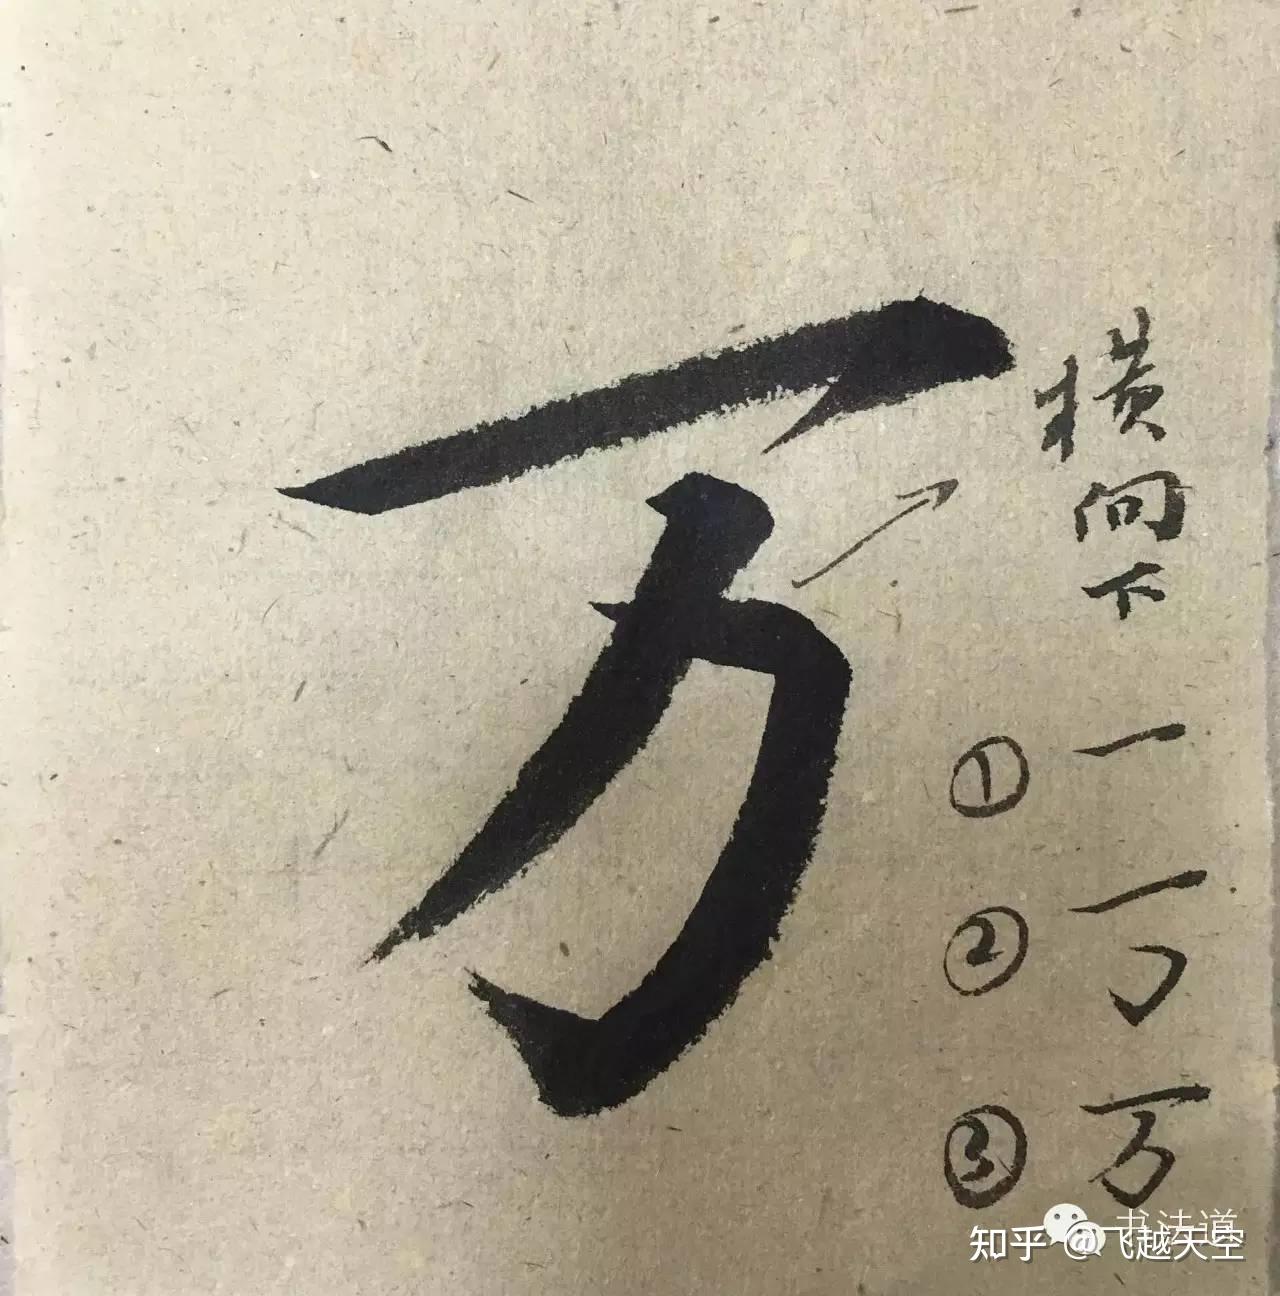 万
横向下
① 一
② 一㇆
③ 万
书法道
知乎 @飞越天空